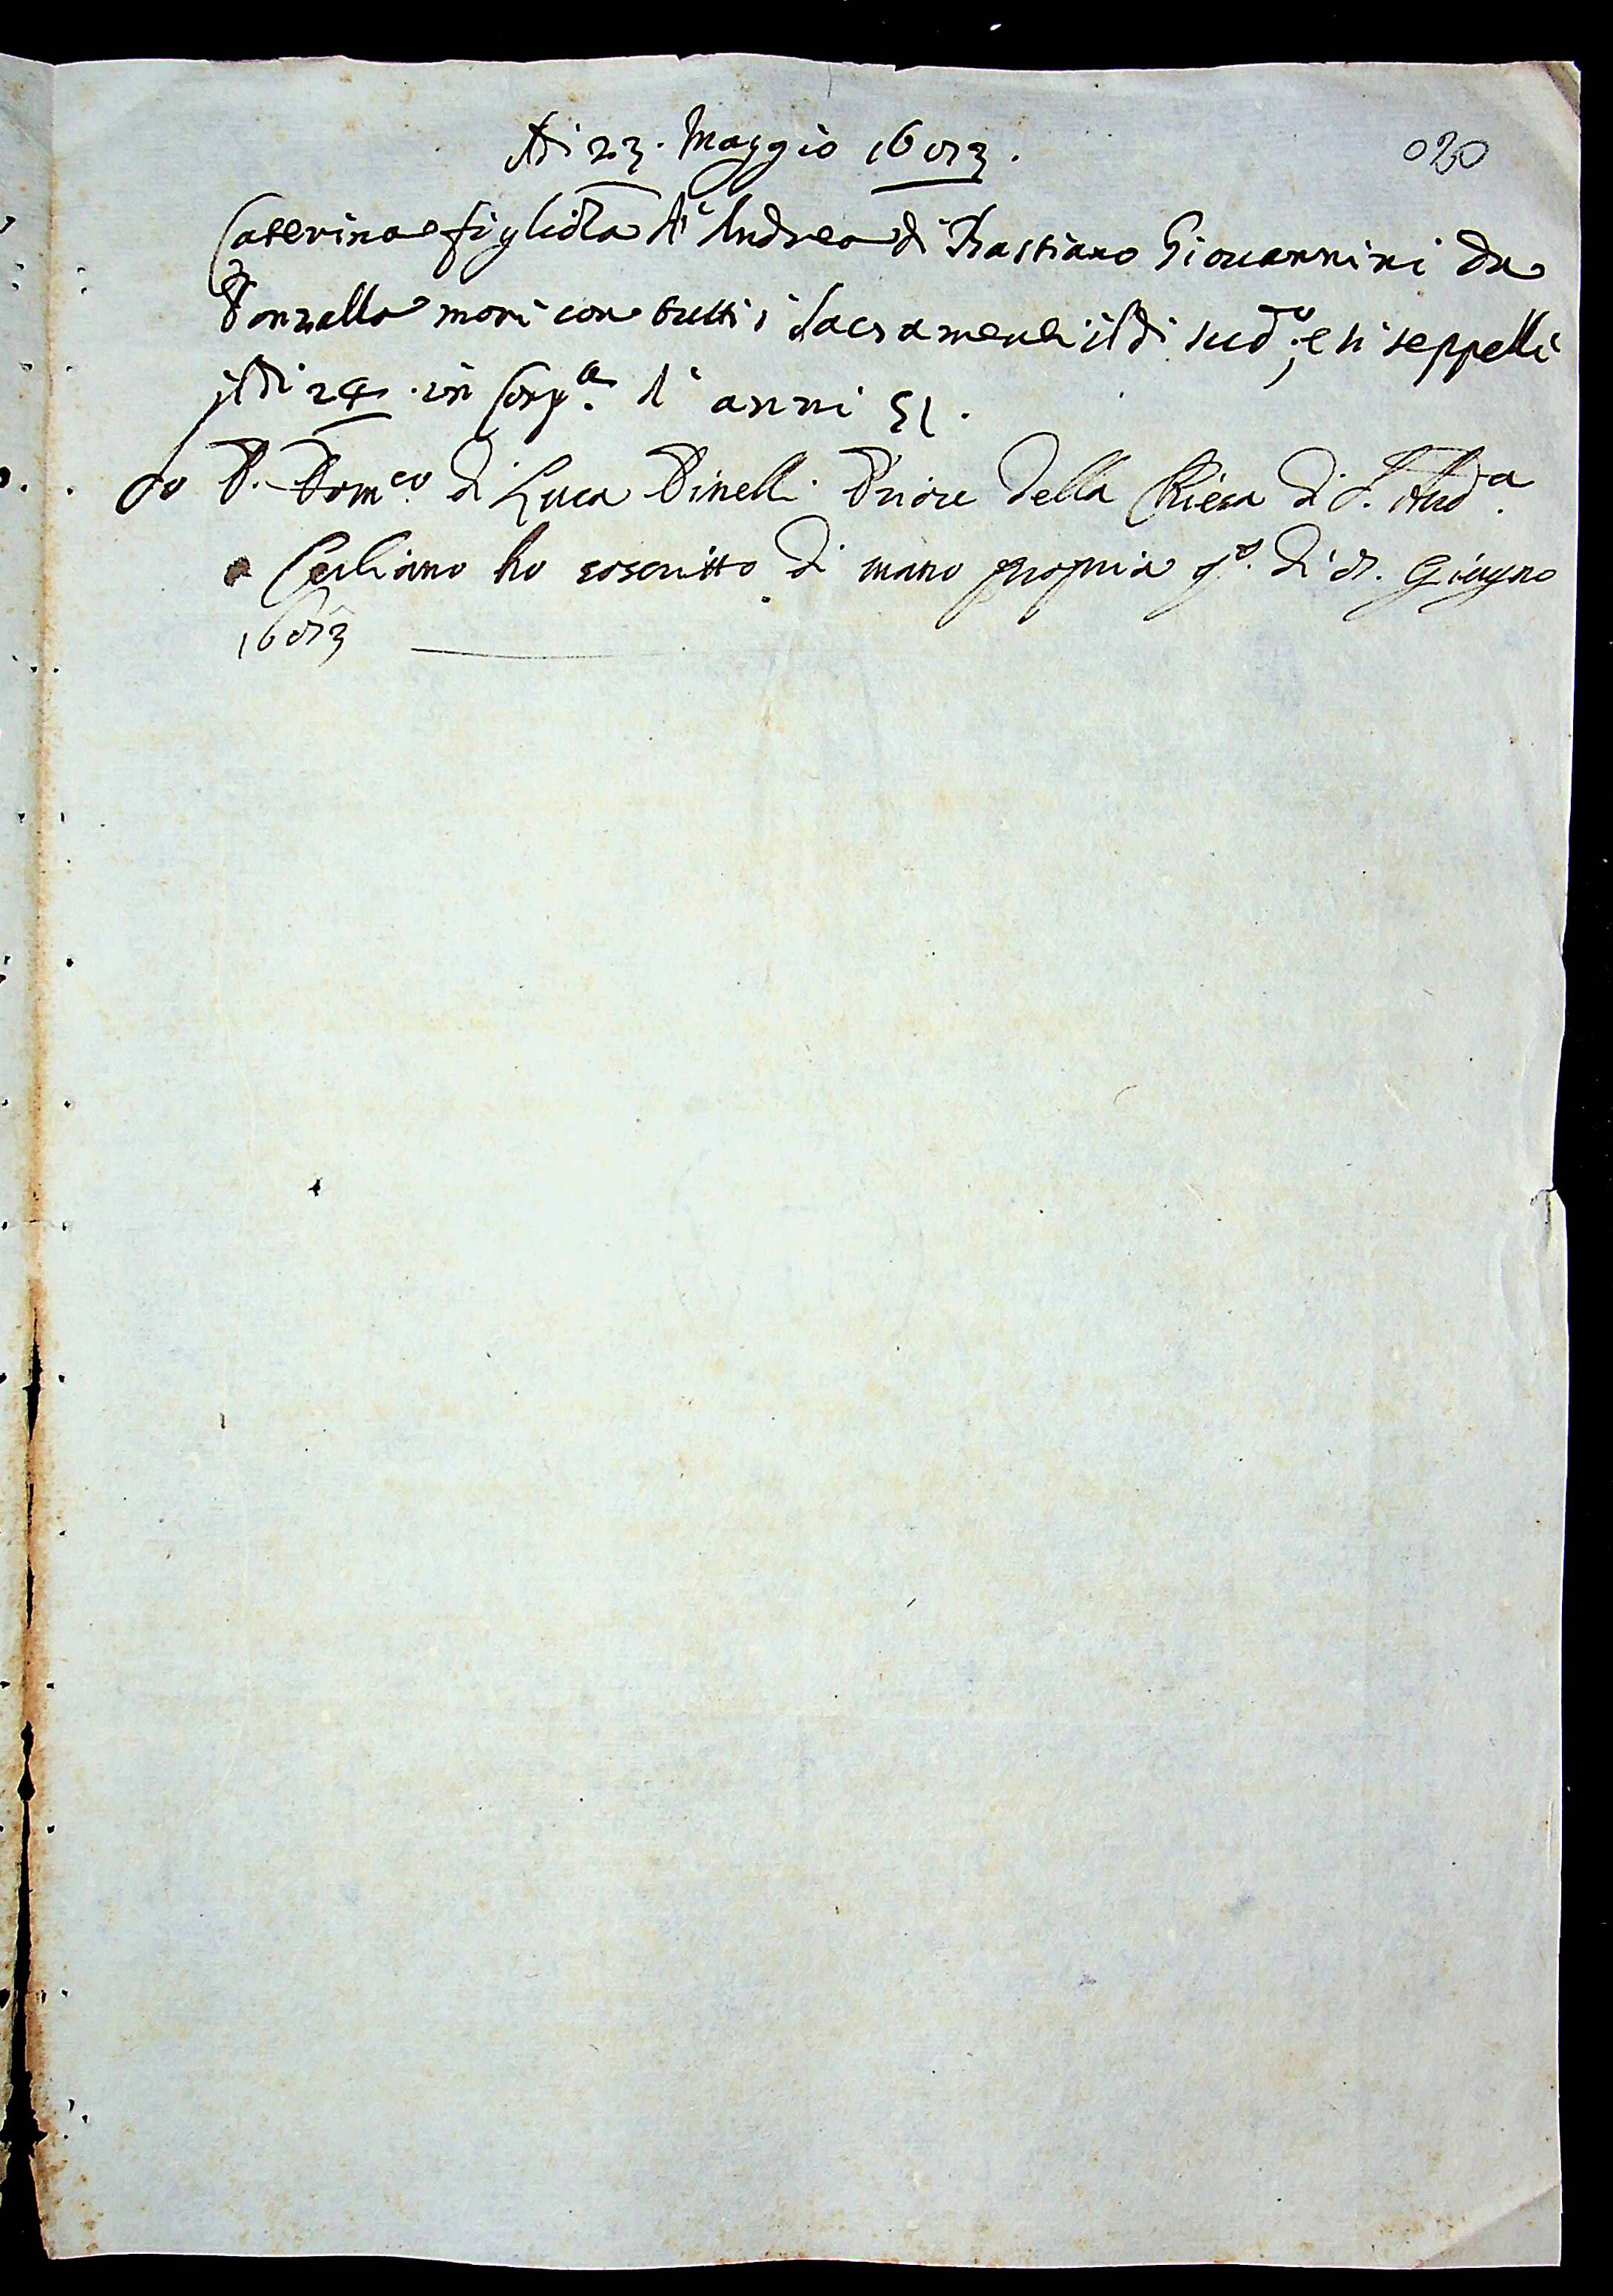 Adi 23. Maggio 1683.
020
Caterina figliola d'Andrea di Bastiano Giovannini da
Ponzallo morì con tutti i Sacramenti il di sud.º, e si seppellì
il di 24. in Comp.ª d'anni 51.
Io P. Dom.co di Luca Pinelli Priore della Chiesa di S. And.ª
a Cerliano ho soscritto di mano propria q.º di 8. Giugno
1683